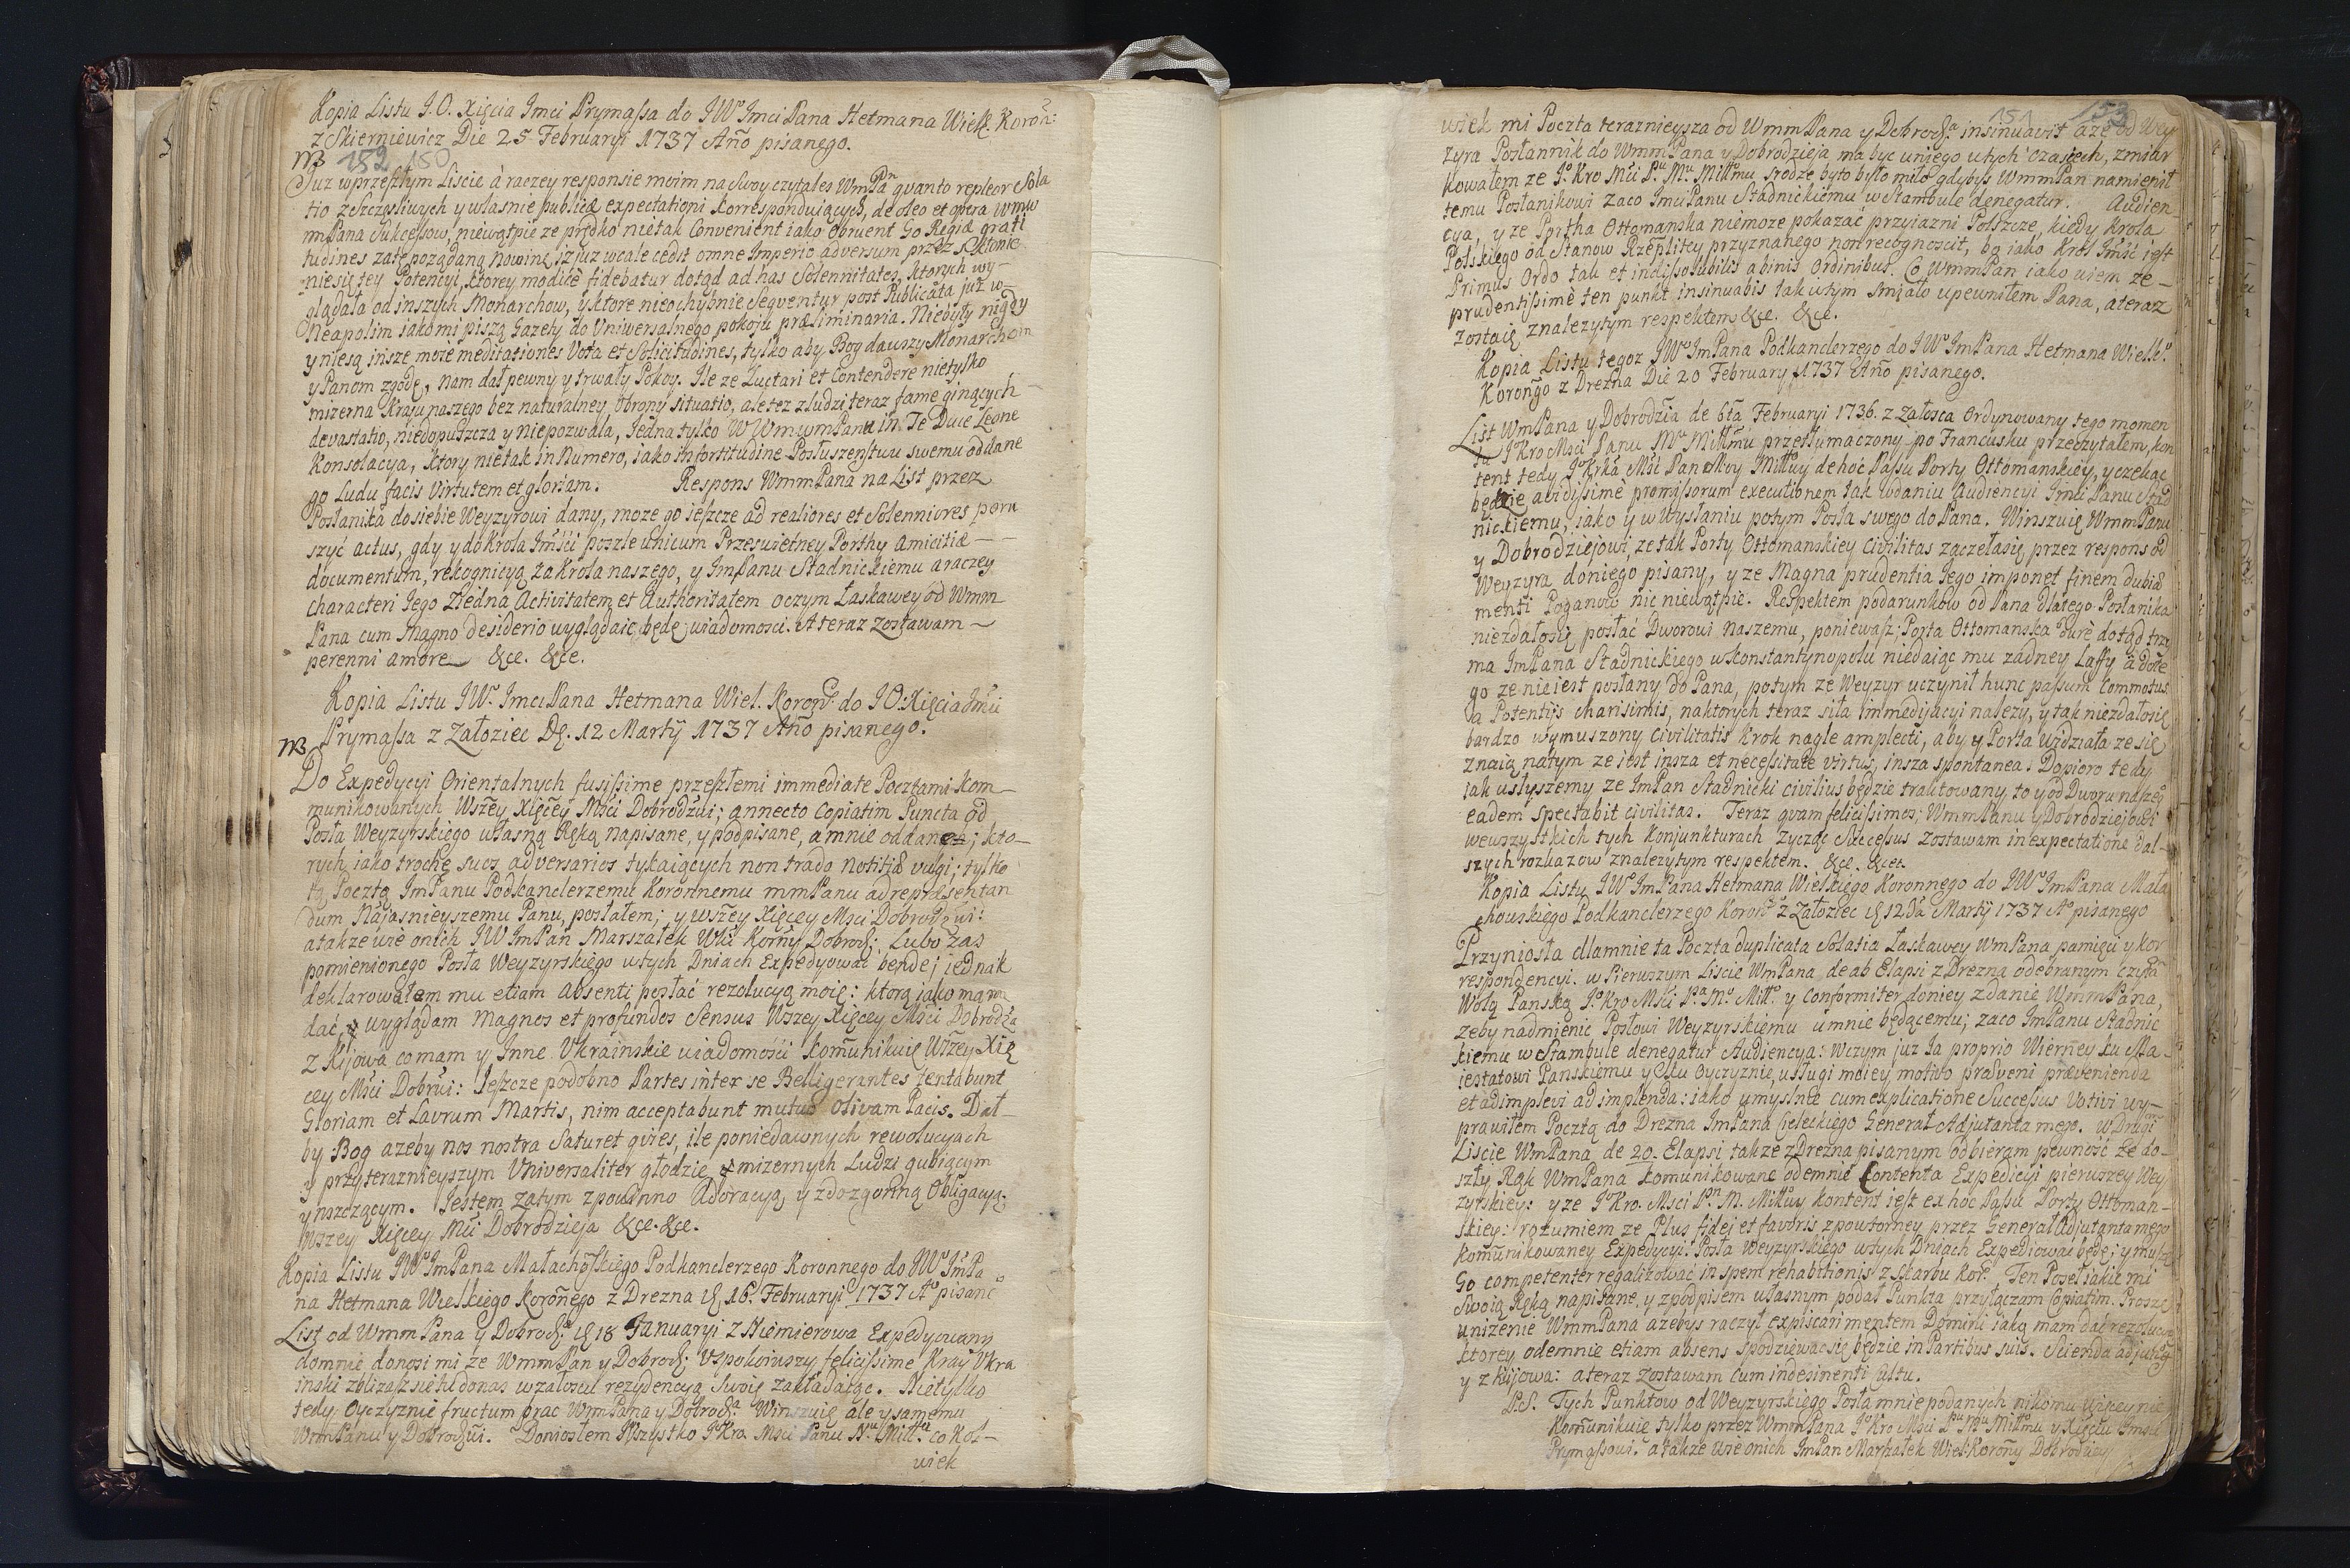 Kopia Listu J.O. Xięcia Jmci Prymassa do JWo Jmci Pana Hetmana Wielk. Koron:
z Skierniewicz Die 25 Februaryi 1737 Ano pisanego.
NB 152 150
Juz w przeszłym Liscie á raczey responsie moim na Swoy czytałes WmPan quanto repleor Sola
tio z Szczęsliwych y własnie publicæ expectationi korrespondujących, de oleo et opera Wmm
mPana Sukcessow, niewątpię ze prędko nietak Convenient iako obruent Go Regiæ grati
tudines za tę poządaną nowinę, iz juz wcale cedit omne Imperio adversum przez skłonie
niesię tey Potencyi, ktorey modicè fidebatur dotąd ad has Solennitates, ktorych wy-
glądała od inszych Monarchow, y ktore nieochybnie Seqventur post Publicata juz w
Neapolim iako mi piszą Gazety do Uniwersalnego pokoju præliminaria. Niebyły nigdy
y niesą insze moie meditationes Vota et Solicitudines, tylko aby Bog dawszy Monarchom
y Panom zgodę, nam dał pewny y trwały Pokoy. Ile ze Luctari et Contendere nietylko
mizerna Kraju naszego bez naturalney obrony situatio, ale tez z ludzi teraz fame ginących
devastatio, niedopuszcza y niepozwala, Jedna tylko W WmmPanu in Te Duce Leone
Konsolacya, ktory nietak in Numero, iako in fortitudine Posłuszenstwu swemu oddane
go Ludu facis Virtutem et gloriam. Respons WmmPana na List przez
Posłanika do siebie Weyzyrowi dany, moze go ieszcze ad realiores et Solenniores poru
szyć actus, gdy y do Krola Jmści poszle unicum Przeswietney Porthy Amicitiæ
documentum, rekognicyą za Krola naszego, y Jm Panu Stadnickiemu a raczey
characteri Jego Ziedna Activitatem et Authoritatem o czym Łaskawey od Wmm
Pana cum Magno desiderio wyglądaic będę wiadomosci. A teraz zostawam
perenni amore &ce. &ce.
Kopia Listu JWo Jmci Pana Hetmana Wiel. Korong. do JO: Xięcia Jmci
Prymassa z Załoziec D. 12 Martÿ 1737 Ano pisanego.
NB
Do Expedycyi Orientalnych fusissime przeszłemi immediate Pocztami kom
munikowanych Wszey Xięcey Msci Dobrodzwi; annecto copiatim Puncta od
Posła Weyzyrskiego własną Ręką napisane, y podpisane, a mnie oddane; kto-
rych iako trochę suos adversarios tykaiących non trado notitiæ vulgi; tylko
tą Pocztą JmPanu Podkanclerzemu Koronnemu mmPanu ad repræsentan
dum Najasnieyszemu Panu, posłałem; y Wszey Xięcey Msci Dobrodzwi:
a takze wie onich JW JmPan Marszałek Wki Korny Dobrodz: Lubo zas
pomienionego Posła Weyzyrskiego w tych Dniach Expedyować bende; iednak
deklarowałem mu etiam absenti posłać rezolucyą moię: ktorą iako mam
dać, wyglądam Magnos et profundos Sensus Wszey Xięcey Msci Dobrodza
z Kijowa co mam y Inne Ukrainskie wiadomości komunikuię Wszey Xię
cey Msci Dobrwi: Jeszcze podobno Partes inter se Belligerantes tentabunt
Gloriam et Laurum Martis, nim acceptabunt mutuo olivam Pacis. Dał
by Bog azeby nos nostra Saturet gires, ile poniedawnych rewolucyach
y przy teraznieyszym Universaliter głodzie, mizernych Ludzi gubiącym
y niszczącym. Jestem zatym z powinno Adoracyą, y z dozgonną Obligacyą
Wszey Xięcey Mci Dobrodzieja &ce. &ce.
Kopia Listu JWo JmPana Małachoskiego Podkanclerzego Koronnego do JWo JmPa
na Hetmana Wielkiego Koronego z Drezna d 16. Februaryi 1737 Ao pisane
List od WmmPana y Dobrodz: d 18 Januaryi z Niemierowa Expedyowany
do mnie donosi mi ze WmmPan y Dobrodz: Uspokoiwszy felicissime Kray Ukra
inski zblizasz się tu do nas w Załoscu rezydencyą Swoię zakładaiąc. Nietylko
tedy Oyczyznie fructum prac WmPana y Dobrodza Winszuię ale y samemu
WmPanu y Dobrodzwi. Doniosłem Wszystko Jo Kro Msci Panu Nu Mitt. co kol-
wiek
151 153
wiek mi Poczta teraznieysza od WmmPana y Dobrodza insinuavit a ze od Wey
zyra Posłannik do WmmPana y Dobrodzieja ma byc u niego w tych czasiech, zmiar
kowałem ze Jo Kro Mci Pu Mu Mittmu srodze byto było miło gdybys WmmPan namienił
temu Posłanikowi zaco Jmci Panu Stadnickiemu w Stambule denegatur. Audien
cya, y ze Portha Ottomanska niemoze pokazać przyiazni Polszcze, kiedy Krola
Polskiego od Stanow Rzeplitey przyznanego non recognoscit, bo iako Krol Jmśc iest
Primus Ordo tak et indissolubilis a binis Ordinibus. Co WmmPan iako wiem ze
prudentissimè ten punkt insinuabis tak w tym smiało upewniłem Pana, a teraz
zostaię z nalezytym respektem &ce. &ce.
Kopia Listu tegoz JWo JmPana Podkanclerzego do JWo JmPana Hetmana Wielk.
Korongo z Drezna Die 20 February 1737 Ano pisanego.
List WmPana y Dobrodzia de 6ta Februaryi 1736. z Załosca Ordynowany tego momen
tu Jo Kro Msci Panu Mu Mittmu przetłumaczony po Francusku przeczytałem, kon
tent tedy Jo Krka Msci Pan Moy Mittwy de hoc Passu Porty Ottomanskiey, y czekac
będzie avidissimè promissorum executionem tak w daniu Audiencyi Jmci Panu Stad
nickiemu, iako y w Wysłaniu potym Posła swego do Pana. Winszuię WmmPanu
y Dobrodziejowi, ze tak Porty Ottomanskiey Civilitas zaczełasię przez respons od
Weyzyra doniego pisany, y ze Magna prudentia Jego imponet finem dubia
menti Poganow nic niewątpię. Respektem podarunkow od Pana dla tego Posłanika
niezdałosię posłać Dworowi Naszemu, poniewaz Porta Ottomanska durè dotąd trzy
ma JmPana Stadnickiego w Konstantynopolu niedaiąc mu zadney Laffy à do te
go ze nieiest posłany do Pana, potym ze Weyzyr uczynił hunc passum Commotus
a Potentijs charisimis, naktorych teraz siła immedijacyi nalezy, y tak niezdałosię
bardzo wymuszony Civilitatis krok nagle amplecti, aby y Porta widziała ze się
znaią natym ze iest insza et necessitate virtus, insza spontanea; Dopioro tedy
iak usłyszemy ze JmPan Stadnicki civilius będzie traktowany, to y od Dworu naszej
eadem spectabit civilitas. Teraz qvam felicissimos; WmmPanu y Dobrodziejowi
wewszystkich tych Konjunkturach zycząc Successus zostawam in expectatione dal-
szych rozkazow z nalezytym respektem. &ce. &cet.
Kopia Listu JWo JmPana Hetmana Wielkiego Koronnego do JWo JmPana Mała
chowskiego Podkanclerzego Koron z Załoziec d 12 da Martÿ 1737 Ao pisanego
Przyniosła dlamnie ta Poczta duplicata Solatia Łaskawey WmPana pamięci y kor
respondencyi. w Pierwszym Liscie WmPana de ab Elapsi z Drezna odebranym czyta
Wolą Panską Jo Kro Mski Pa Mo Mitto. y Conformiter doniey zdanie WmmPana,
zeby nadmienic Posłowi Weyzyrskiemu u mnie będącemu; zaco JmPanu Stadnic
kiemu w Stambule denegatur Audiencya: Wczym juz Ja proprio Wierney ku Ma
iestatowi Panskiemu y Cku Oyczyznie, usługi moiey motivo præveni prævenienda
et adimplevi adimplenda: iako umyslnie cum explicatione Successus Votivi wy-
prawiłem Pocztą do Drezna JmPana Cieleckiego General Adjutanta mego. w Drugi
Liscie WmPana de 20. Elapsi takze z Drezna pisanym odbieram pewność ze do-
szły Rąk WmPana komunikowane odemnie Contenta Expedicyi pierwszey Wey
zyrskiey: y ze Jo Kro. Msci Pn M. Mittwy kontent iest ex hoc Passu Porty Ottoman-
skiey: rozumiem ze Plus fidej et favoris z powtorney przez General Adjutanta mego
komunikowaney Expedycyi: Posła Weyzyrskiego w tych Dniach Expediować będę; y muszę
Go competenter regalizować in spem rehabitionis z skarbu Kor. Ten Poseł iakie mi
Swoią Ręką napisane, y z podpisem własnym podał Punkta przyłączam Copiatim. Proszę
unizenie WmmPana azebys raczył expiscari mentem Domini iaką mam dać rezolucyą
ktorey odemnie etiam absens spodziewac się będzie in Partibus suis. Scienda adjungo
y z Kijowa: a teraz zostawam cum indesinenti Cultu.
P.S. Tych Punktow od Weyzyrskiego Posła mnie podanych nikomu więcey nie
komunikuię tylko przez WmmPana Jo Kro Msci Pu Mu Mittmu y Xięciu Jmsci
Prymassowi. a takze wie onich JmPan Marszałek Wiel: Korony Dobrodziey